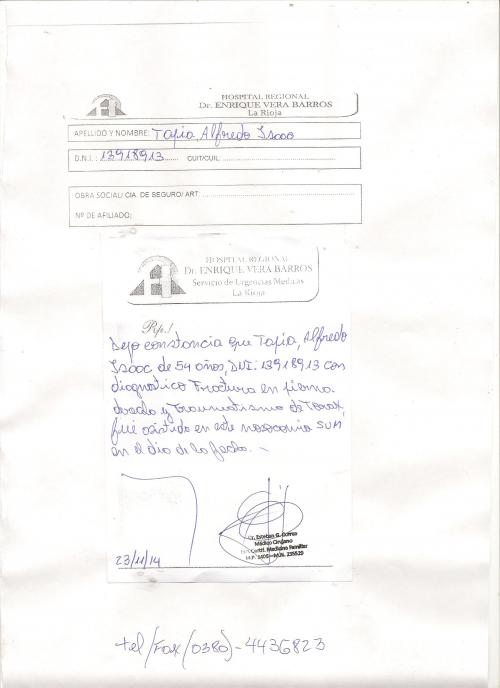 HOSPITAL REGIONAL
Dr. ENRIQUE VERA BARROS
La Rioja
APELLIDO Y NOMBRE: Tapia, Alfredo Isaac
D.N.I.: 13918913 CUIT/CUIL:
OBRA SOCIAL/ CIA. DE SEGURO/ ART:
Nº DE AFILIADO:
HOSPITAL REGIONAL
Dr. ENRIQUE VERA BARROS
Servicio de Urgencias Medicas
La Rioja
Rp.!
Dejo constancia que Tapia, Alfredo
Isaac de 54 años, DNI: 13918913 con
diagnotico Fractura en pierna
y Traumatismo de Torax,
fue asistido en este nosocomio SUM
en el dia de la fecha.
Dr. Esteban G. Correa
Médico Cirujano
Medicina Familiar
23/11/14
tel/Fax (0380)-4436823